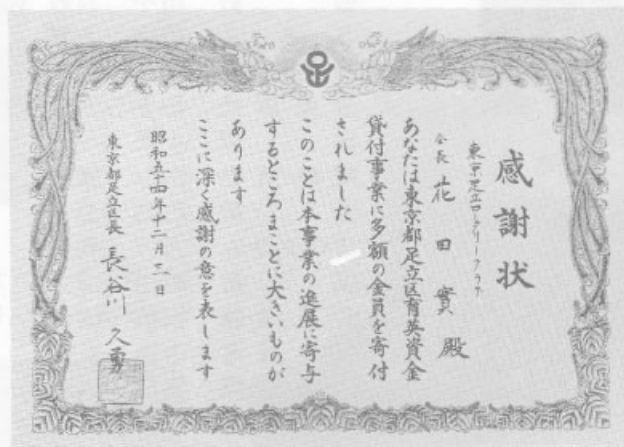 感謝状
東京足立ロータリークラブ
会長 花田實殿
あなたは東京都足立区育英資金
貸付事業に多額の金員を寄付
されました
このことは本事業の進展に寄与
するところまことに大きいものが
あります
ここに深く感謝の意を表します
昭和五十四年十二月 日
東京都足立区長 長谷川久勇